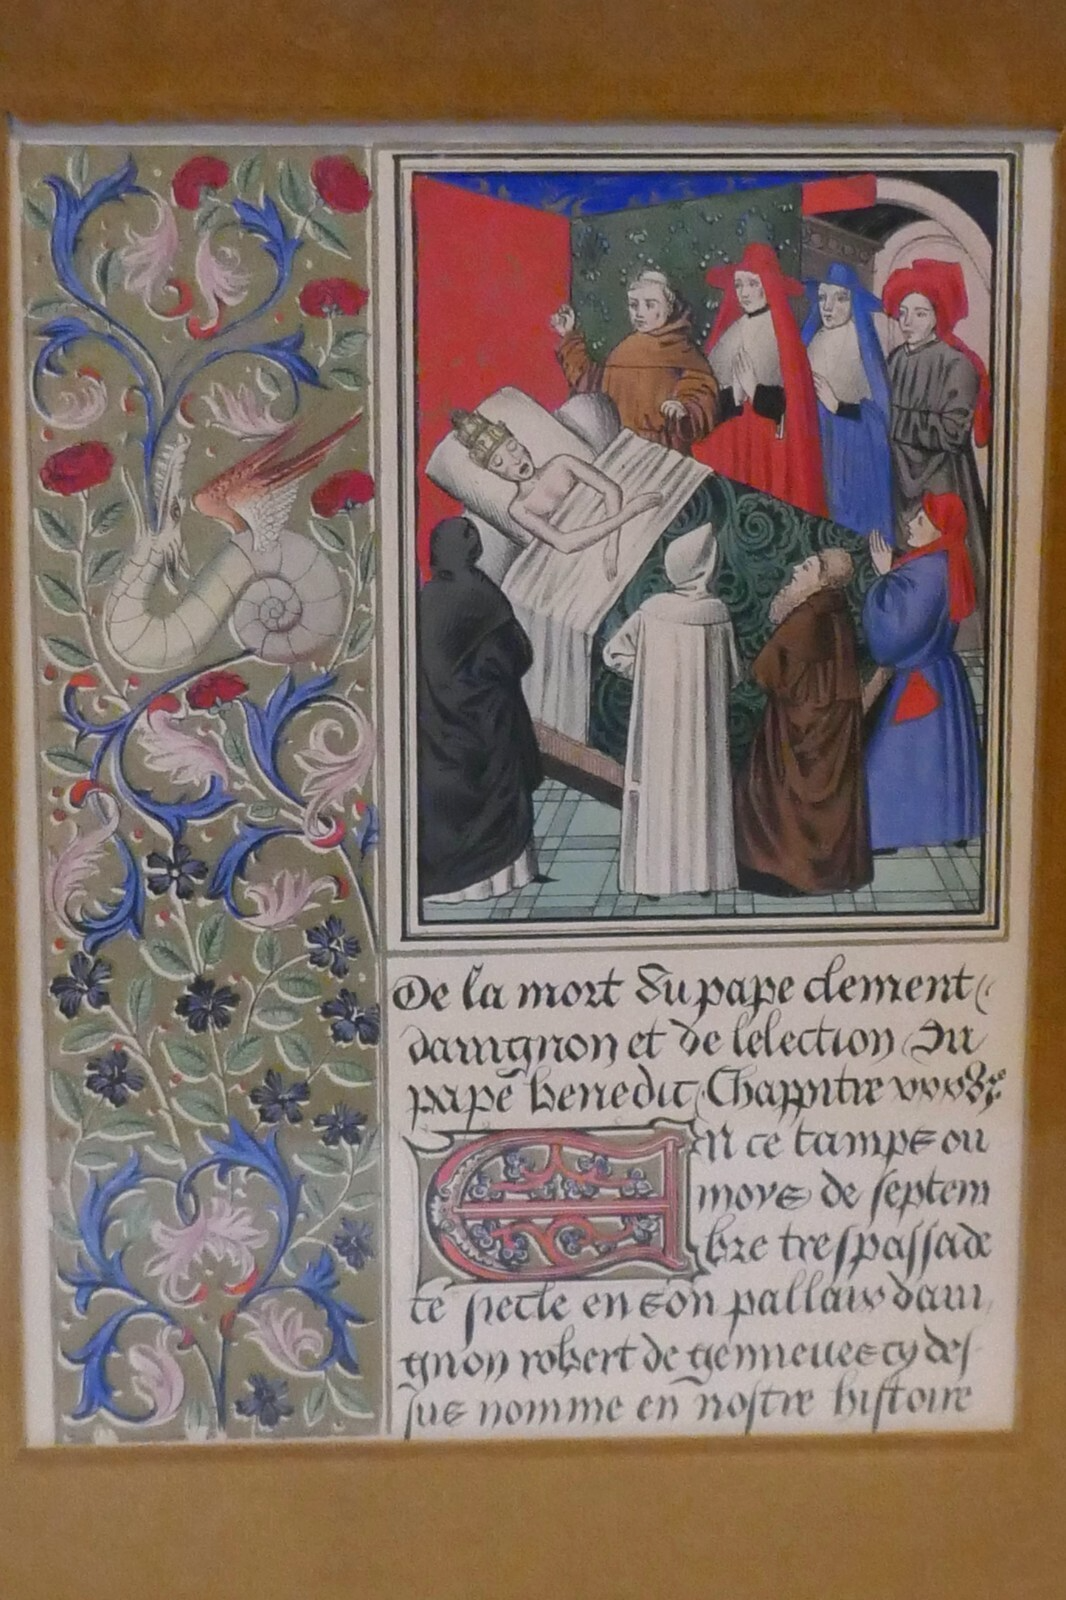 De la mort du pape clement
davignon et de lelection du
pape benedic Chappitre
En ce tamps ou
moys de septem
bre trespassa de
ce siecle en son pallais davi
gnon robert de genneues cy des
sus nomme en nostre histoire